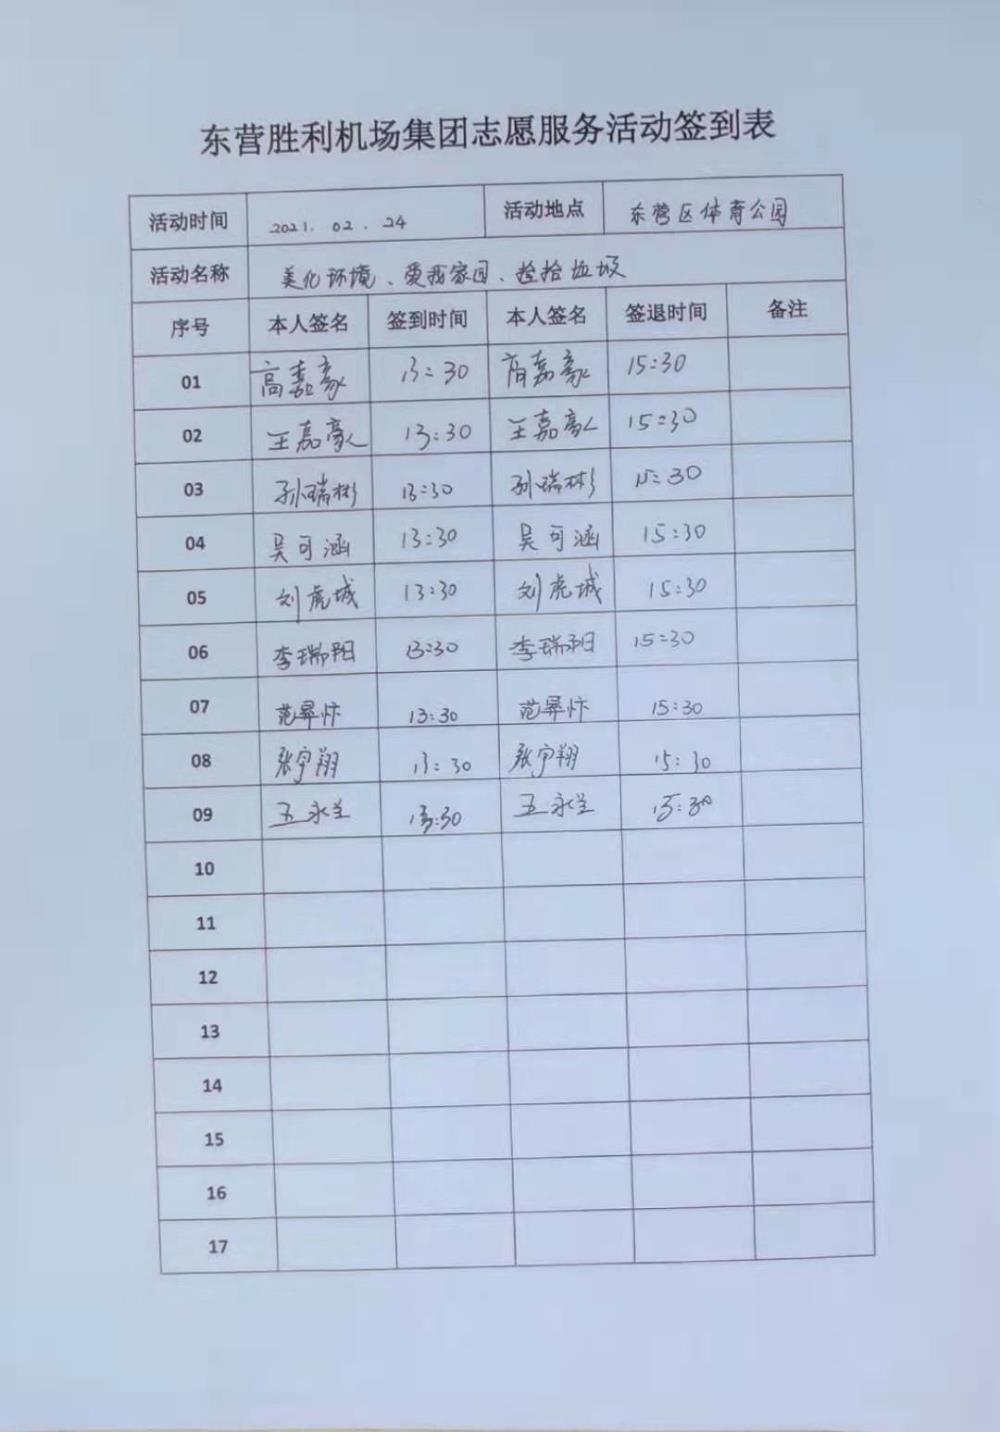 东营胜利机场集团志愿服务活动签到表
活动时间 2021.02.24 活动地点 东营区体育公园
活动名称 美化环境、爱我家园、捡拾垃圾
序号 本人签名 签到时间 本人签名 签退时间 备注
01 高嘉豪 13:30 高嘉豪 15:30
02 王嘉豪 13:30 王嘉豪 15:30
03 孙瑞彬 13:30 孙瑞彬 15:30
04 吴可涵 13:30 吴可涵 15:30
05 刘虎城 13:30 刘虎城 15:30
06 李瑞阳 13:30 李瑞阳 15:30
07 13:30 15:30
08 张宇翔 13:30 张宇翔 15:30
09 13:30 15:30
10
11
12
13
14
15
16
17